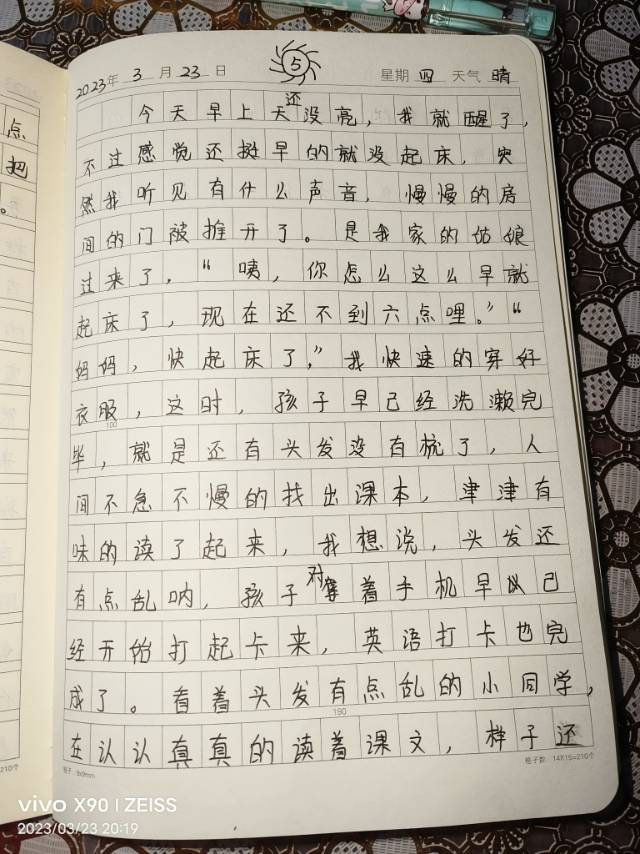 点
把
。
2023年 3 月 23 日 5 星期 四 天气 晴
今天早上天还没亮，我就醒了，
不过感觉还挺早的就没起床，突
然我听见有什么声音，慢慢的房
间的门被推开了。是我家的姑娘
过来了，“咦，你怎么这么早就
起床了，现在还不到六点哩。”“
妈妈，快起床了，”我快速的穿好
衣服，这时，孩子早已经洗濑完
100
毕，就是还有头发没有梳了，人
间不急不慢的找出课本，津津有
味的读了起来，我想说，头发还
有点乱呐，孩子对着手机早以己
经开始打起卡来，英语打卡也完
成了。看着头发有点乱的小同学，
190
在认认真真的读着课文，样子还
=210个
格子 9x9mm
格子数：14X15=210个
vivo X90 | ZEISS
2023/03/23 20:19